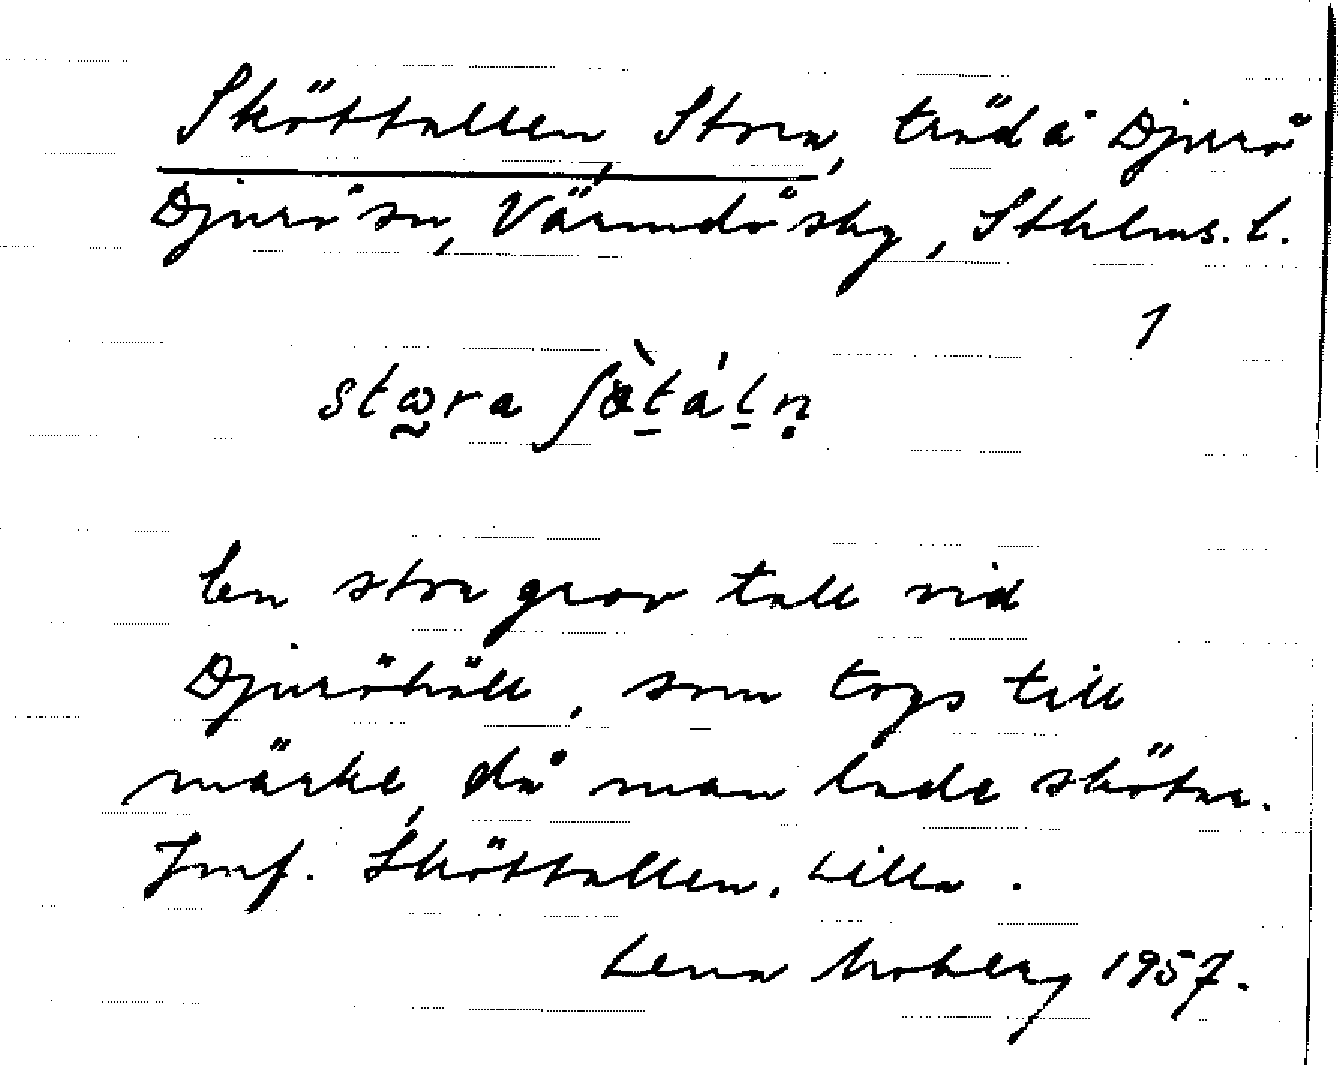 Sköttallen, Stora, träd å Djurö
Djurö sn, Värmdö skg, Sthlms. l.
1
stɷ̰ra ʃø̀ṯáḻṇ
En stor grov tall vid
Djuröhäll, som togs till
märke, då man lade skötar.
Jmf. Sköttallen, Lilla.
Lena Moberg 1957.